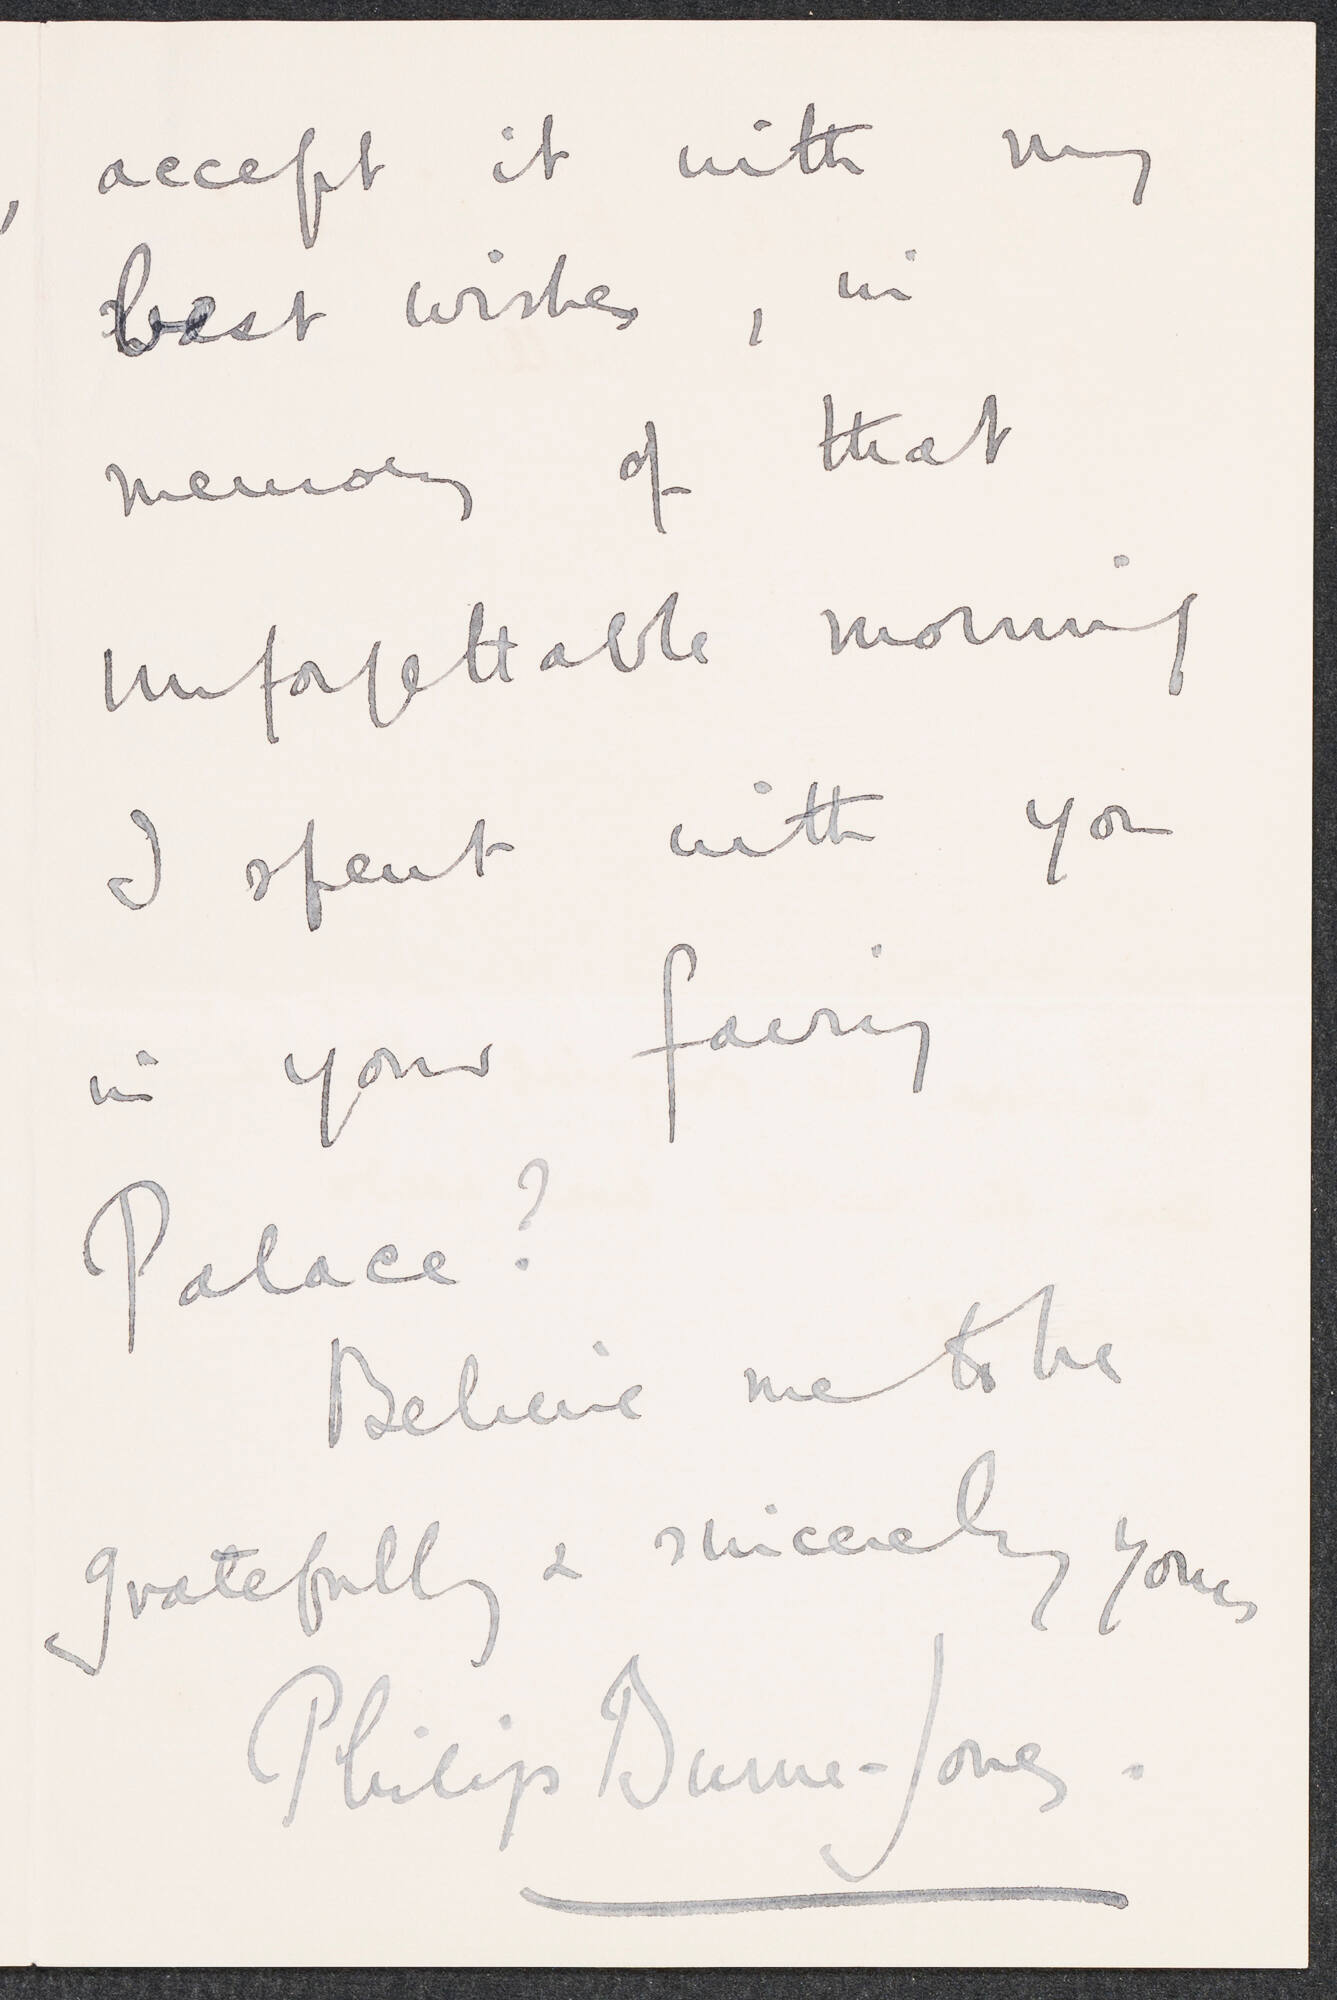 accept it with my
best wishes, in
memory of that
unforgettable morning
I spent with you
in your fairy
Palace?
Believe me to be
gratefully & sincerely yours
Philip Burne-Jones.